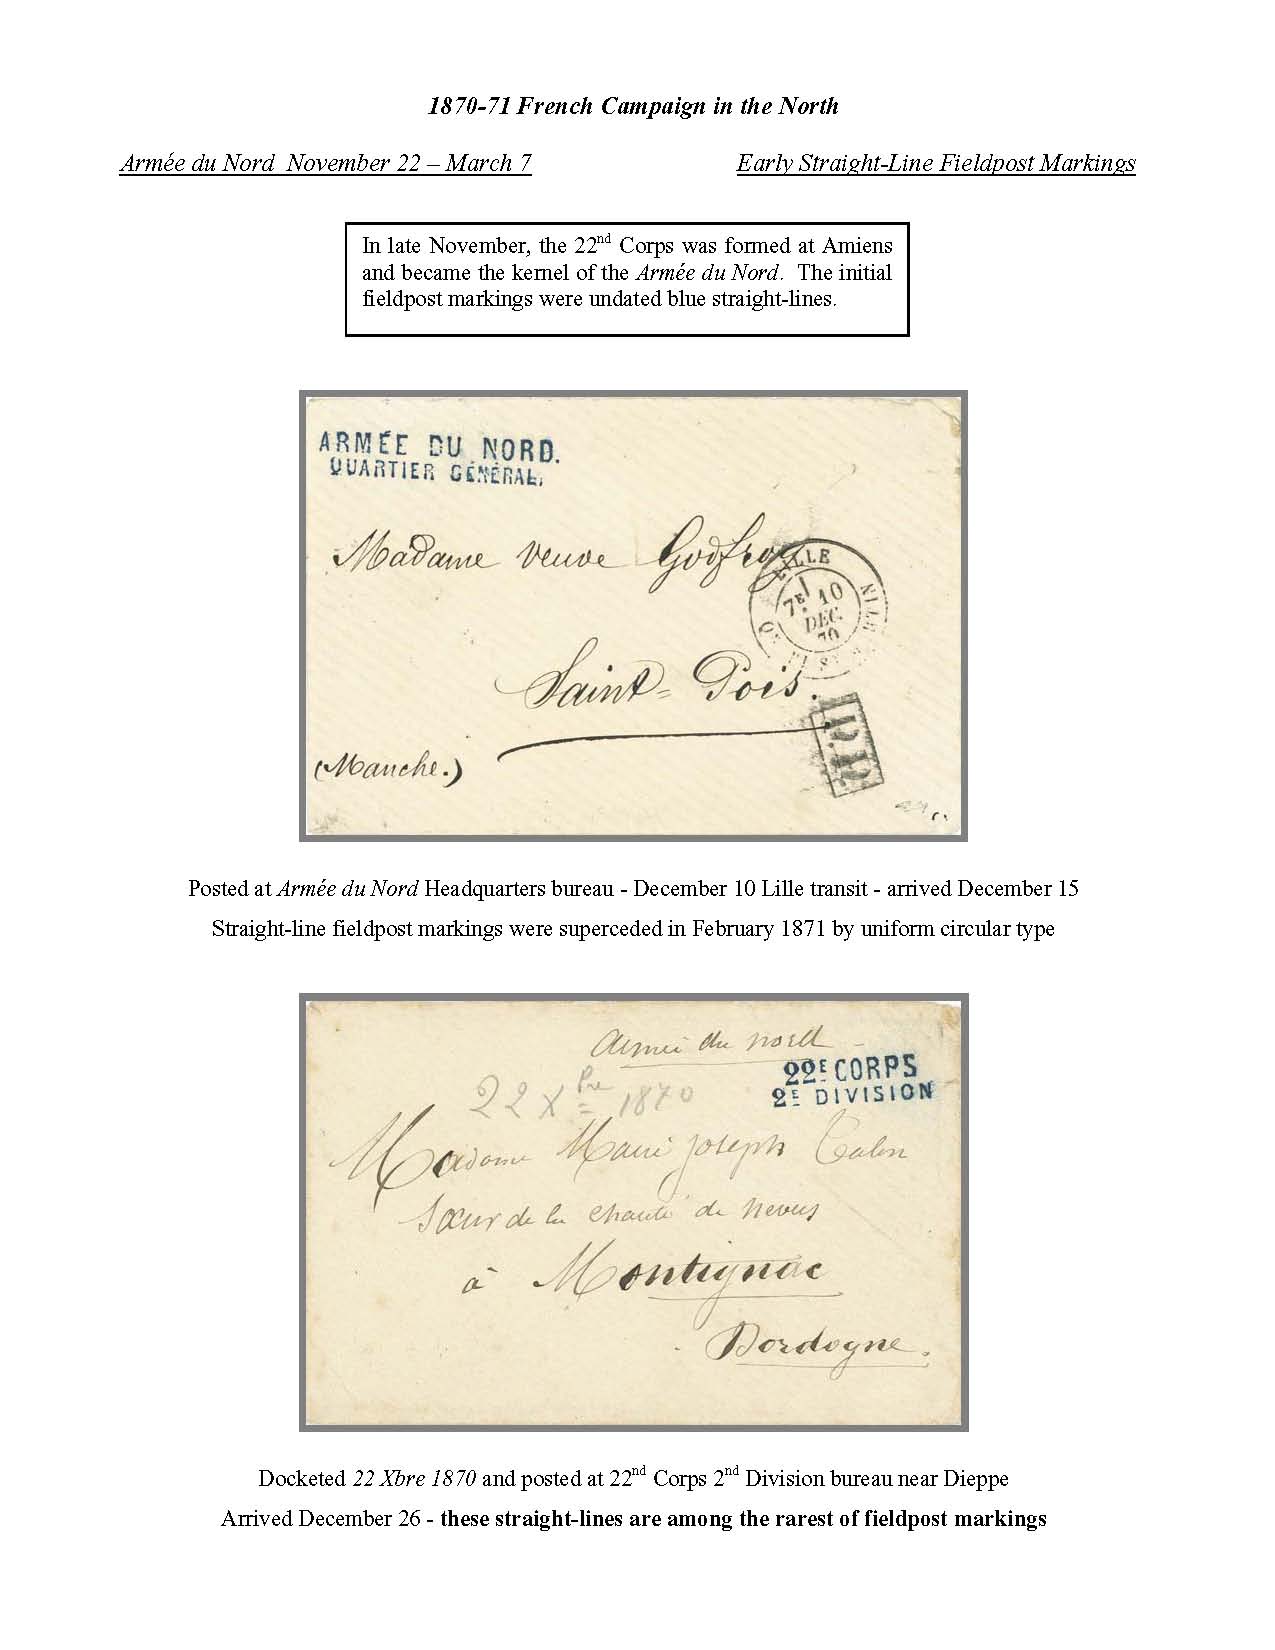 1870-71 French Campaign in the North
Armée du Nord November 22 – March 7
Early Straight-Line Fieldpost Markings
In late November, the 22nd Corps was formed at Amiens
and became the kernel of the Armée du Nord. The initial
fieldpost markings were undated blue straight-lines.
ARMÉE DU NORD.
QUARTIER GÉNÉRAL.
Madame veuve Godfroy
LILLE
7E 10
DEC.
70
Saint-Pois.
P.P.
(Manche.)
Posted at Armée du Nord Headquarters bureau - December 10 Lille transit - arrived December 15
Straight-line fieldpost markings were superceded in February 1871 by uniform circular type
Armée du nord
22E CORPS
2E DIVISION
22 Xbre 1870
Madame Marie Joseph
Sœur de la charité de nevers
à Montignac
Dordogne.
Docketed 22 Xbre 1870 and posted at 22nd Corps 2nd Division bureau near Dieppe
Arrived December 26 - these straight-lines are among the rarest of fieldpost markings